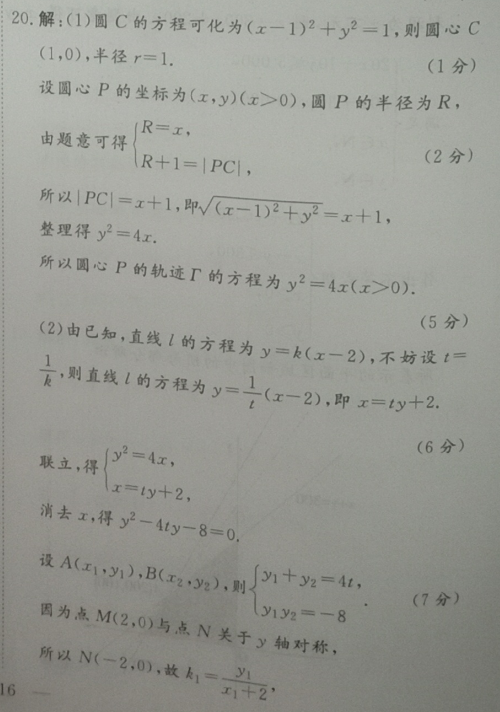 20.解:(1)圆 C 的方程可化为(x-1)²+y²=1,则圆心 C
(1,0),半径 r=1. (1分)
设圆心 P 的坐标为(x,y)(x>0),圆 P 的半径为 R,
由题意可得{R=x,
R+1=|PC|, (2分)
所以|PC|=x+1,即√(x-1)²+y²=x+1,
整理得 y²=4x.
所以圆心 P 的轨迹 Γ 的方程为 y²=4x(x>0).
(5分)
(2)由已知,直线 l 的方程为 y=k(x-2),不妨设 t=
1/k,则直线 l 的方程为 y=1/t(x-2),即 x=ty+2.
(6分)
联立,得{y²=4x,
x=ty+2,
消去 x,得 y²-4ty-8=0.
设 A(x₁,y₁),B(x₂,y₂),则{y₁+y₂=4t,
y₁y₂=-8 . (7分)
因为点 M(2,0)与点 N 关于 y 轴对称,
所以 N(-2,0),故 k₁=y₁/(x₁+2),
16